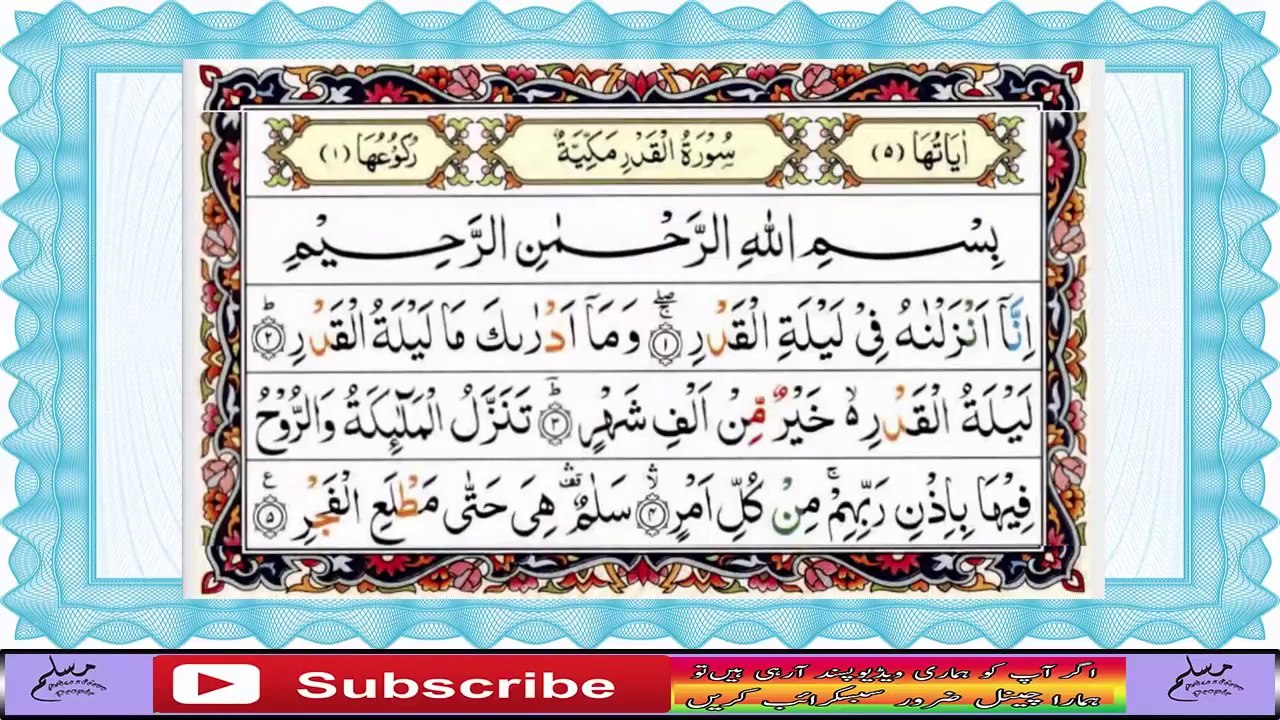 اٰيَاتُهَا (٥) سُوْرَةُ الْقَدْرِ مَكِّيَّةٌ رُكُوْعُهَا (١)
بِسْمِ اللهِ الرَّحْمٰنِ الرَّحِيْمِ
اِنَّاۤ اَنْزَلْنٰهُ فِیْ لَیْلَةِ الْقَدْرِ ۚۖ ﴿١﴾ وَمَاۤ اَدْرٰىكَ مَا لَیْلَةُ الْقَدْرِ ؕ ﴿٢﴾
لَیْلَةُ الْقَدْرِ ۙ۬ خَیْرٌ مِّنْ اَلْفِ شَهْرٍ ؕ ﴿٣﴾ تَنَزَّلُ الْمَلٰٓئِكَةُ وَالرُّوْحُ
فِیْهَا بِاِذْنِ رَبِّهِمْ ۚ مِنْ كُلِّ اَمْرٍ ۙۛ ﴿٤﴾ سَلٰمٌ ۛ۫ هِیَ حَتّٰى مَطْلَعِ الْفَجْرِ ﴿٥﴾ ع
مسلم
Subscribe
اگر آپ کو ہماری ویڈیو پسند آرہی ہیں تو
ہمارا چینل ضرور سبسکرائب کریں
مسلم